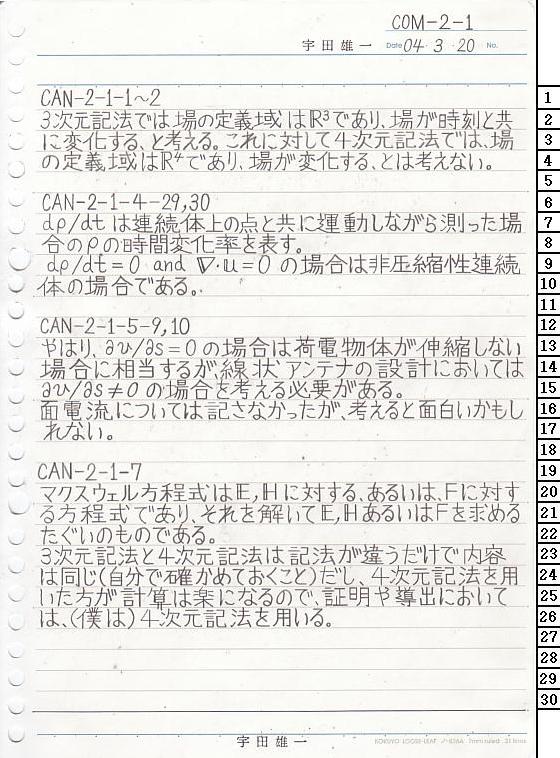 COM-2-1
宇田雄一 Date 04・3・20 No.
CAN-2-1-1~2
3次元記法では場の定義域はℝ³であり、場が時刻と共
に変化する、と考える。これに対して4次元記法では、場
の定義域はℝ⁴であり、場が変化する、とは考えない。
CAN-2-1-4-29,30
dρ/dt は連続体上の点と共に運動しながら測った場
合のρの時間変化率を表す。
dρ/dt=0 and ∇·𝕦=0 の場合は非圧縮性連続
体の場合である。
CAN-2-1-5-9,10
やはり、∂v/∂s=0の場合は荷電物体が伸縮しない
場合に相当するが、線状アンテナの設計においては
∂v/∂s≠0の場合を考える必要がある。
面電流については記さなかったが、考えると面白いかもし
れない。
CAN-2-1-7
マクスウェル方程式は𝔼,ℍに対する、あるいは、Fに対す
る方程式であり、それを解いて𝔼,ℍあるいはFを求める
たぐいのものである。
3次元記法と4次元記法は記法が違うだけで内容
は同じ(自分で確かめておくこと)だし、4次元記法を用
いた方が計算は楽になるので、証明や導出において
は、(僕は)4次元記法を用いる。
宇田雄一
KOKUYO LOOSE-LEAF ノ-836A 7mm ruled 31 lines
1
2
3
4
5
6
7
8
9
10
11
12
13
14
15
16
17
18
19
20
21
22
23
24
25
26
27
28
29
30